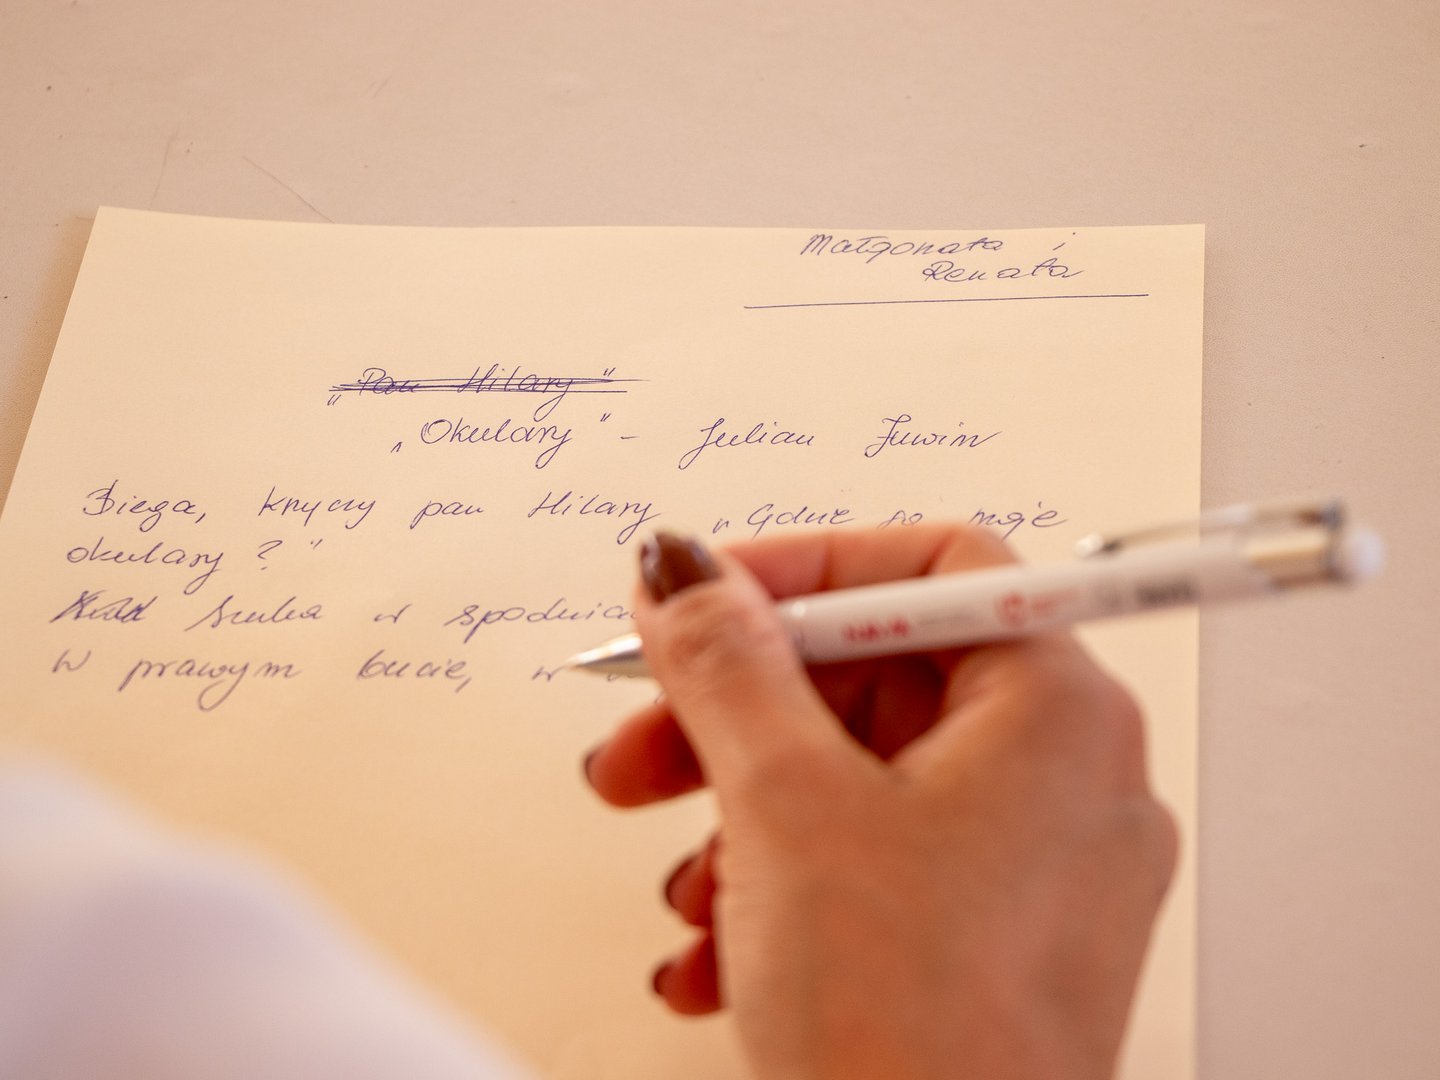 Małgorzata i
Renata
„Pan Hilary"
„Okulary" - Julian Tuwim
Biega, krzyczy pan Hilary „Gdzie są moje
okulary?"
Szuka w spodniac
W prawym bucie, w